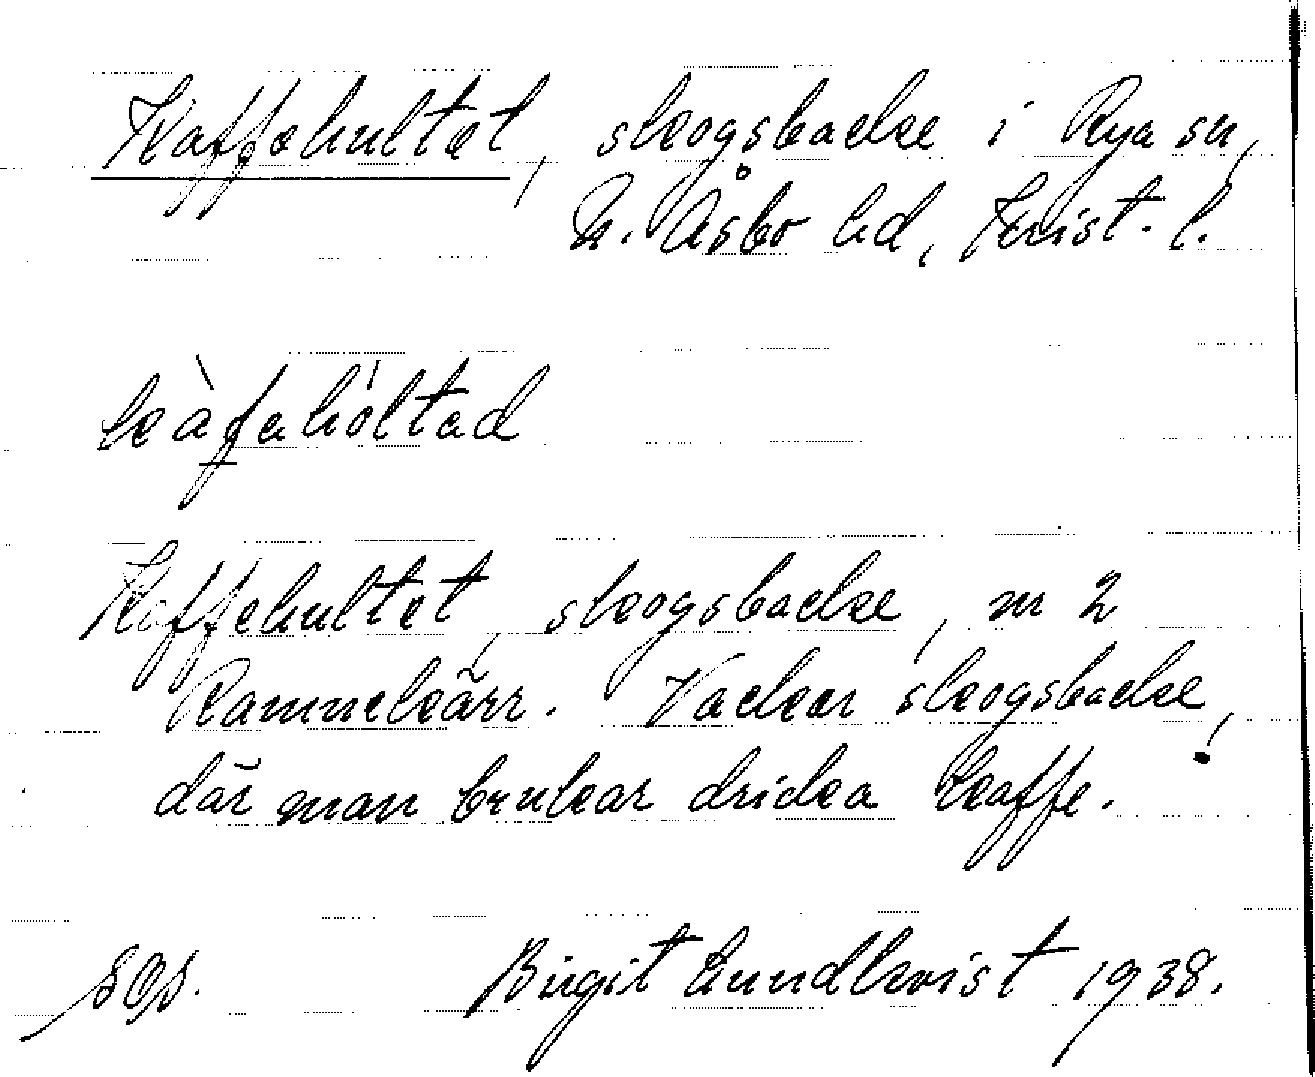 Kaffehultet, skogsbacke i Rya sn,
N. Åsbo hd, Krist. l.
kàfahòltad
Kaffehultet, skogsbacke, nr 2
Rammekärr. Vacker skogsbacke,
där man brukar dricka kaffe.
Birgit Lundkvist 1938.